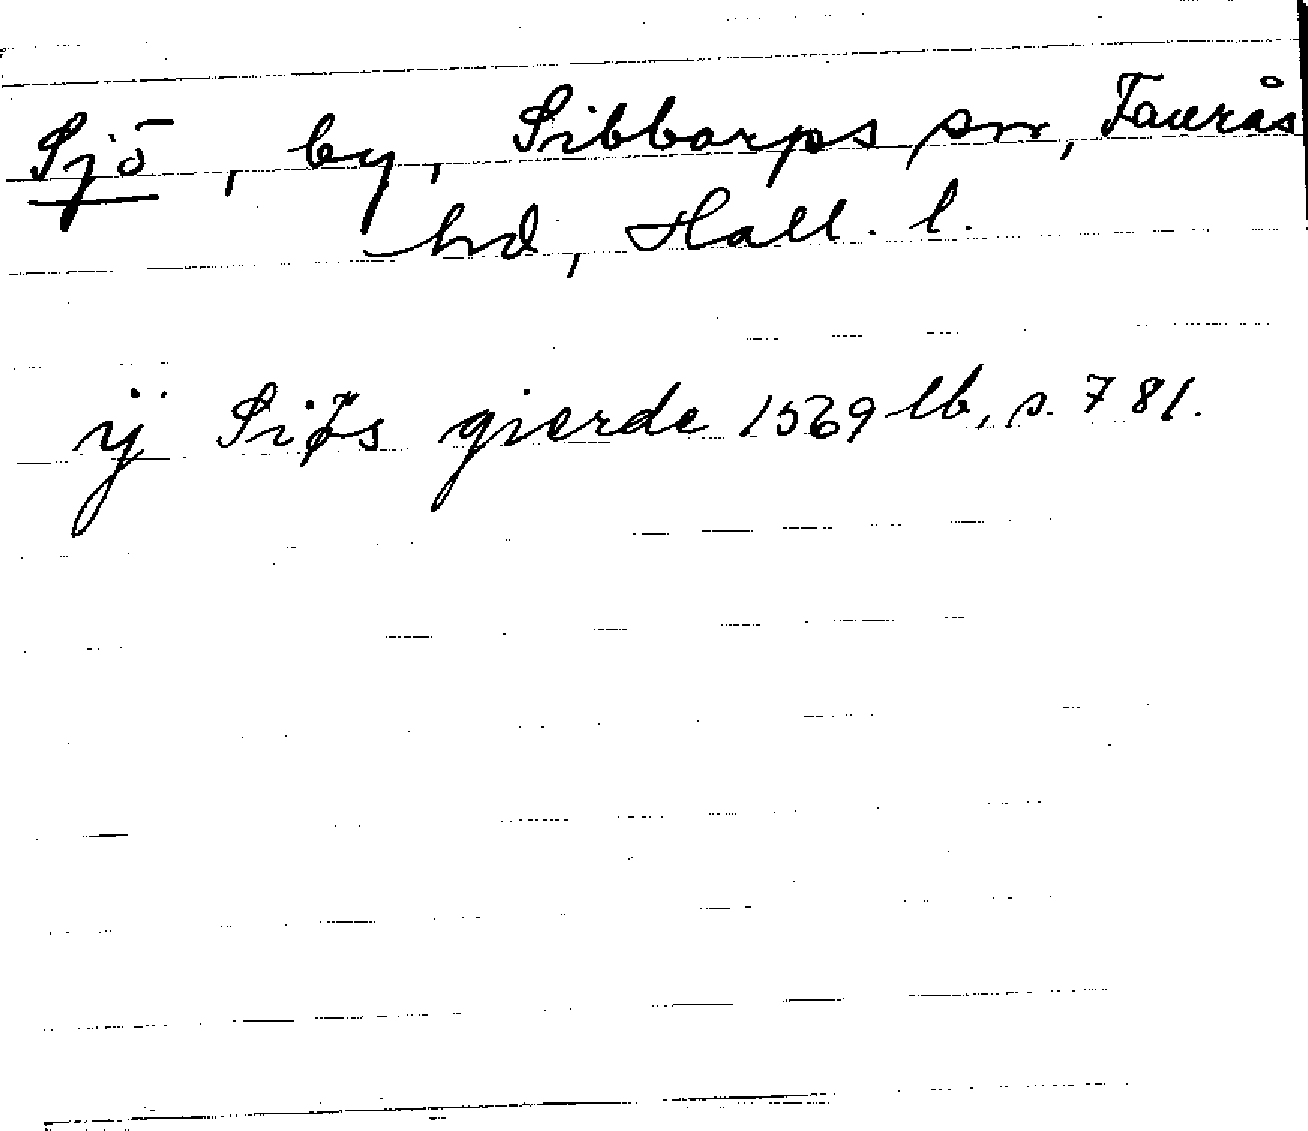 Sjö, by, Sibbarps sn, Faurås
hd, Hall. l.
ÿ Siøs gierde 1569 lb, s. 781.